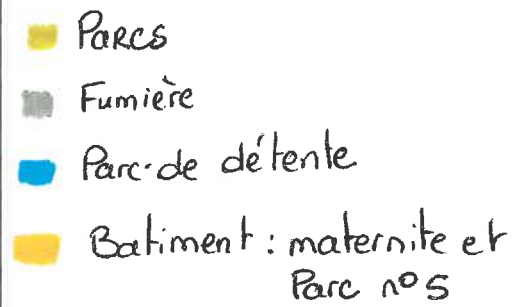 Parcs
Fumière
Parc de détente
Batiment : maternite et
Parc n°5